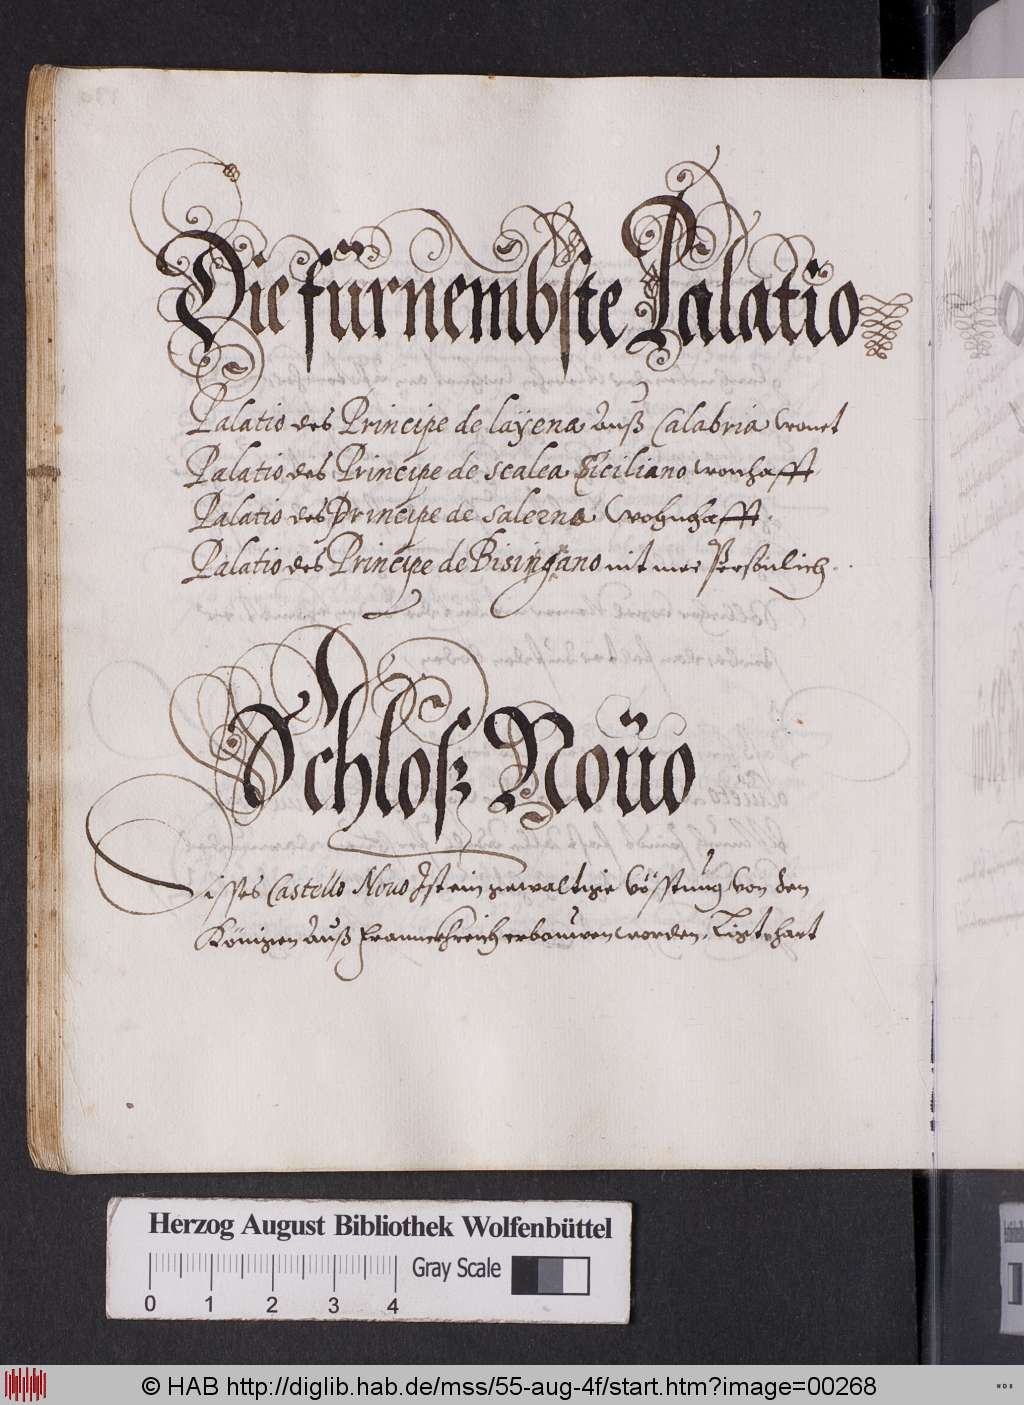 Die fürnembste Palatio
Palatio des Principe de layena Auß Calabria wonet
Palatio des Principe de scalea Siciliano wonhafft
Palatio des Principe de Salerno Wohnhafft.
Palatio des Principe de Bisingano nit mer Persönlich.
Schloß Nouo
Disses Castello Nouo Ist ein gewaltige Vösstung Von den
Königen Auß Franckhreich erbauwen worden, Ligt hart
Herzog August Bibliothek Wolfenbüttel
0 1 2 3 4
Gray Scale
© HAB http://diglib.hab.de/mss/55-aug-4f/start.htm?image=00268